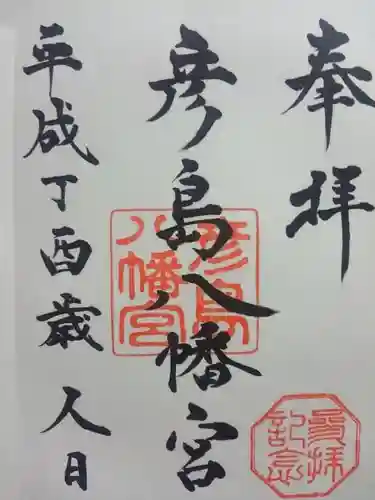 奉拝
彦島八幡宮
平成丁酉歳 人日
彦島八幡宮
参拝記念